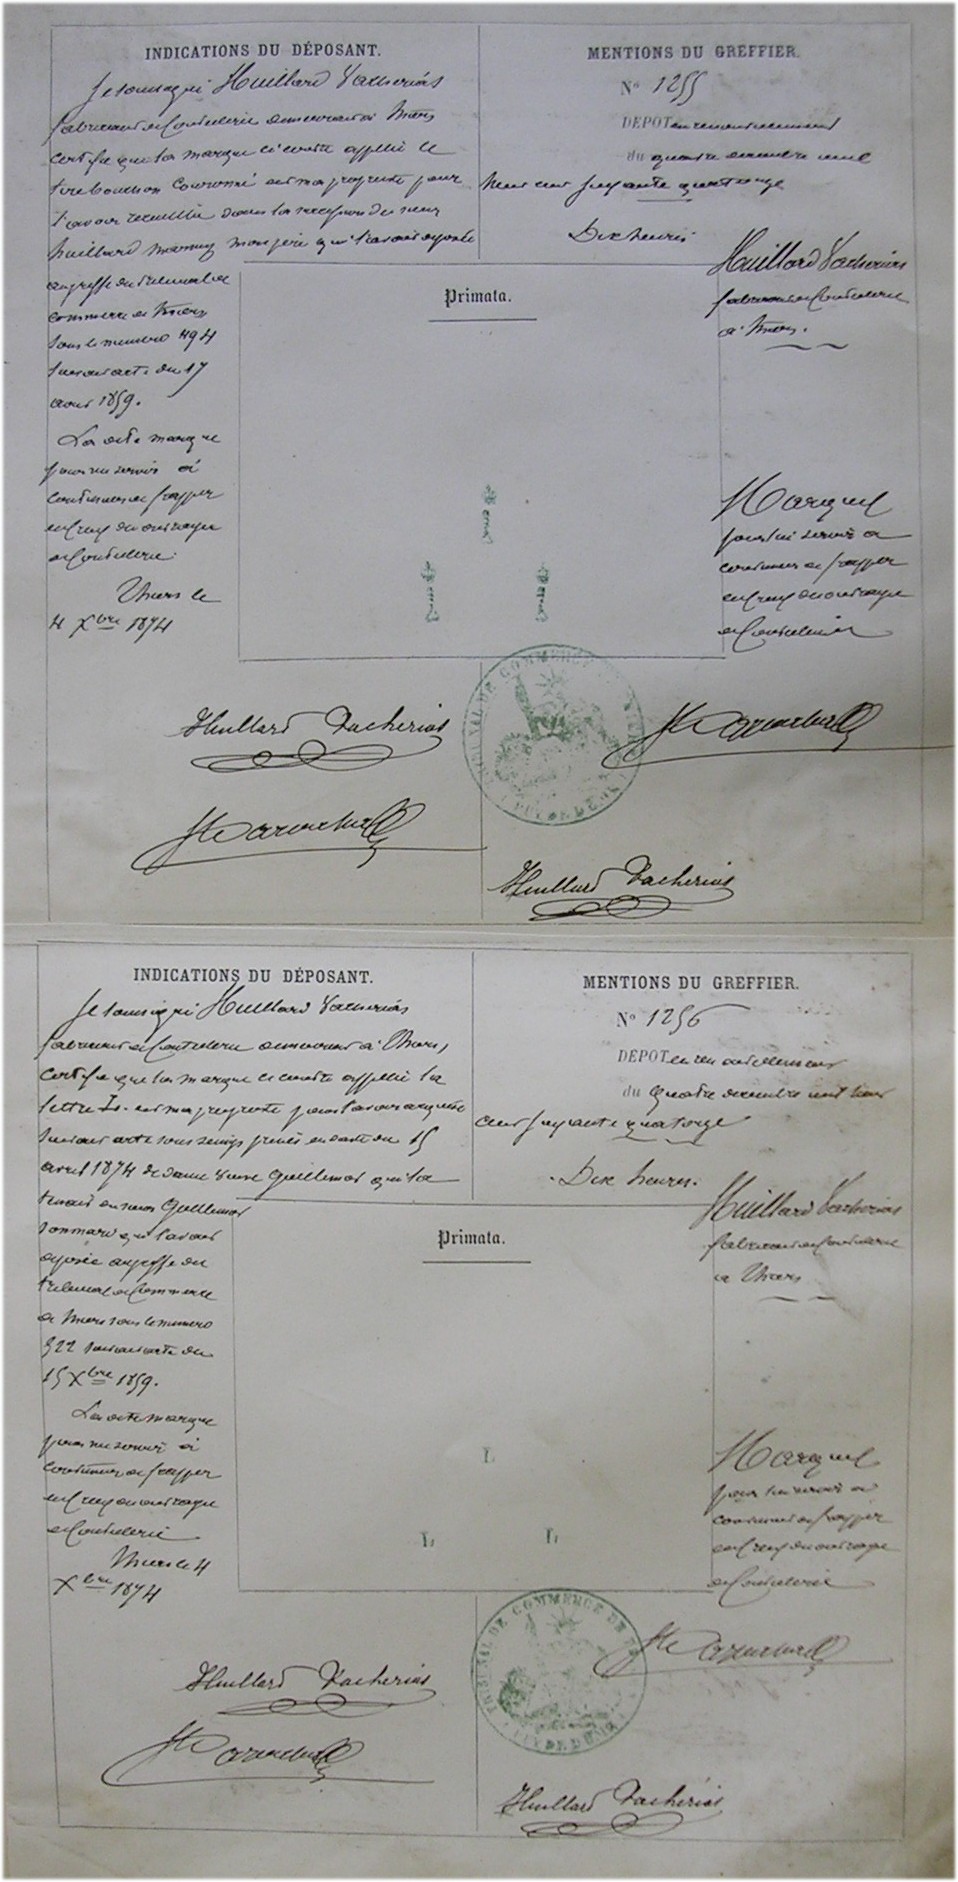 INDICATIONS DU DÉPOSANT.
Je soussigné Huillard Vacherias
fabricant de Coutellerie demeurant à Thiers
certifie que la marque ci contre appelée le
tire bouchon couronné est ma propriété pour
l'avoir recueillie dans la succession du sieur
huillard mon père qui l'avait déposée
au greffe du tribunal de
commerce de Thiers
sous le numero 494
suivant acte du 17
aout 1859.
La dite marque
pour me servir à
continuer de frapper
en creux des ouvrages
de Coutellerie.
Thiers le
4 Xbre 1874
MENTIONS DU GREFFIER.
No 1255
DEPOT en renouvellement
du quatre decembre mil
huit cent soixante quatorze
Dix heures
Huillard Vacherias
fabricant de Coutellerie
à Thiers.
Primata.
Marque
pour lui servir à
continuer de frapper
en creux des ouvrages
de Coutellerie
TRIBUNAL DE COMMERCE DE THIERS
PUY DE DOME
Huillard Vacherias
Huillard Vacherias
INDICATIONS DU DÉPOSANT.
Je soussigné Huillard Vacherias
fabricant de Coutellerie demeurant à Thiers,
certifie que la marque ci contre appelée la
lettre L. est ma propriété pour l'avoir acquise
suivant acte sous seings privés en date du 15
avril 1874 de dame veuve Guillemot qui la
tenait du sieur Guillemot
son mari qui l'avait
déposée au greffe du
tribunal de Commerce
de Thiers sous le numero
522 suivant acte du
15 Xbre 1859.
La dite marque
pour me servir à
continuer de frapper
en creux des ouvrages
de Coutellerie
Thiers le 4
Xbre 1874
MENTIONS DU GREFFIER.
No 1256
DEPOT en renouvellement
du quatre decembre mil huit
cent soixante quatorze
Dix heures.
Huillard Vacherias
fabricant de Coutellerie
à Thiers
Primata.
L
L
L
Marque
pour lui servir à
continuer de frapper
en creux des ouvrages
de Coutellerie
TRIBUNAL DE COMMERCE DE THIERS
PUY DE DOME
Huillard Vacherias
Huillard Vacherias